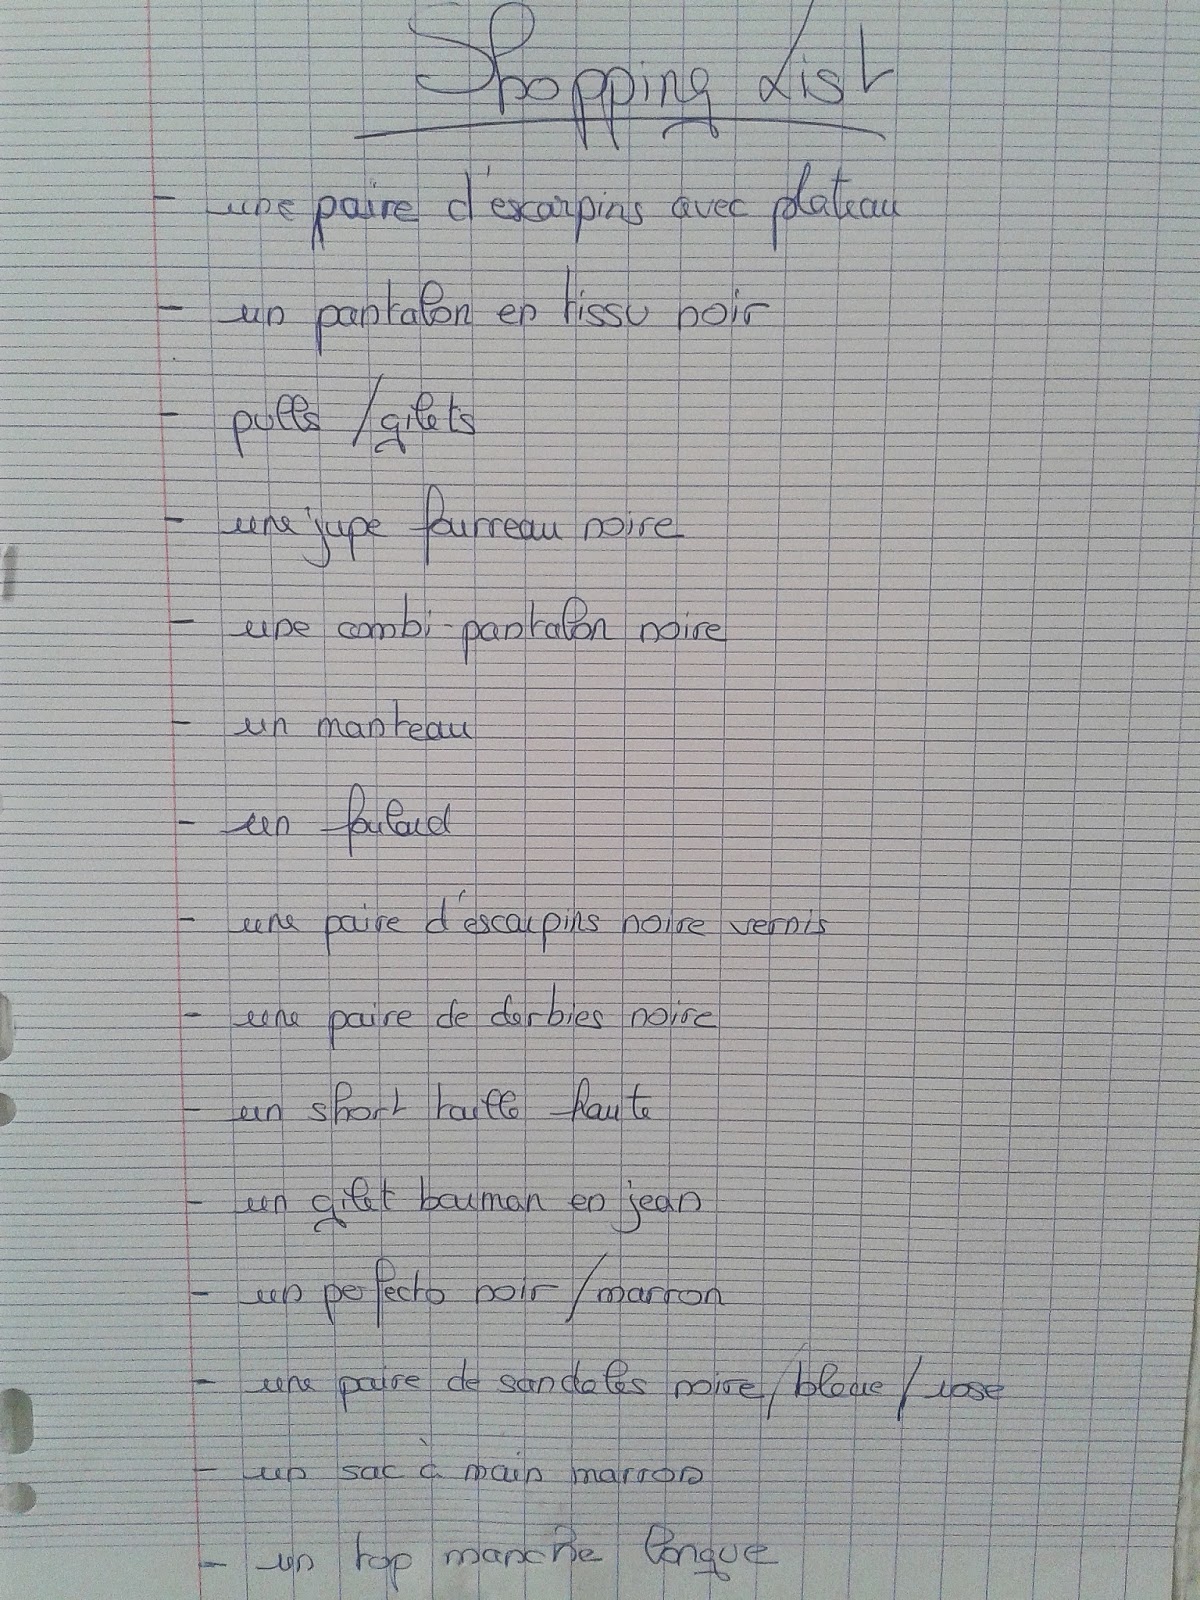 Shopping List
- une paire d'escarpins avec plateau
- un pantalon en tissu noir
- pulls / gilets
- une jupe fourreau noire
- une combi-pantalon noire
- un manteau
- un foulard
- une paire d'escarpins noire vernis
- une paire de derbies noire
- un short taille haute
- un gilet bauman en jean
- un perfecto noir / marron
- une paire de sandales noire / bleue / rose
- un sac à main marron
- un top manche longue